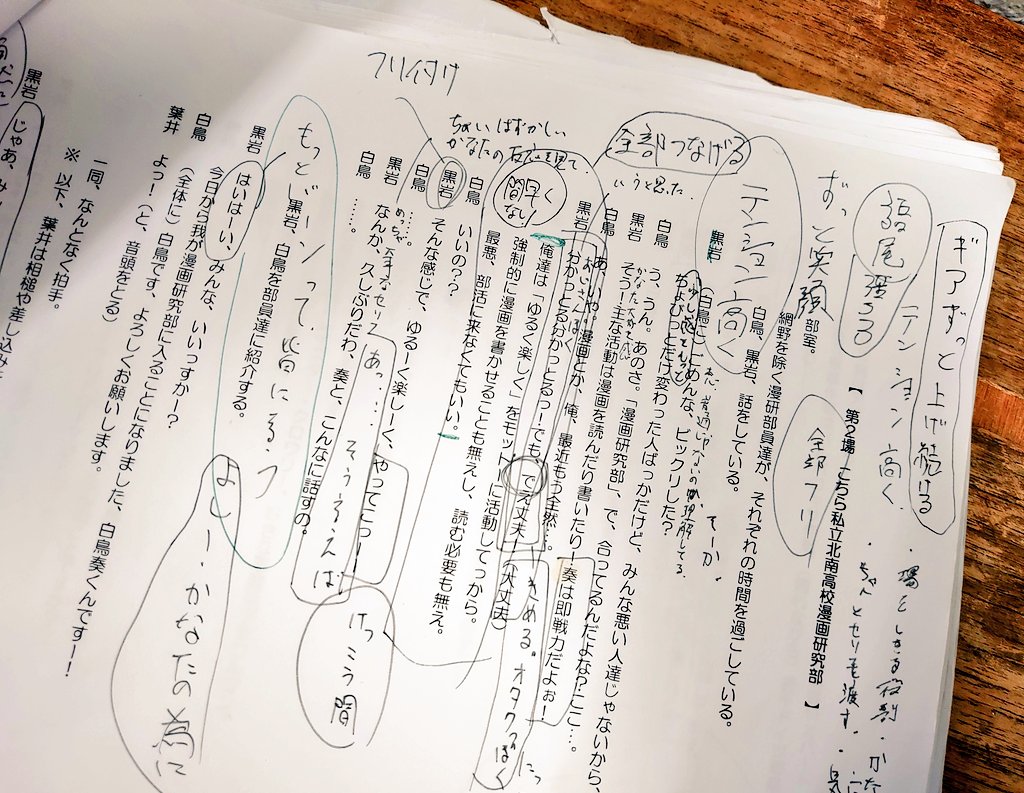 ギアずっと上げ続ける
テンション高く
語尾強ううう
ずっと笑顔
・ちゃんとセリフを渡す
【 第2場 こちら私立北南高校漫画研究部 】
全部フリ
部室。
網野を除く漫研部員達が、それぞれの時間を過ごしている。
白鳥、黒岩、話をしている。
テンション高く
黒岩 白鳥に ごめんな、ビックリした?
ちょびっとだけ変わった人ばっかだけど、みんな悪い人達じゃないから、
白鳥 う、うん。あのさ。「漫画研究部」で、合ってるんだよな?ここ…。
黒岩 そう!主な活動は漫画を読んだり書いたり!奏は即戦力だよぉ!
白鳥 あ、いや…漫画とか、俺、最近もう全然…。
黒岩 分かっとる分かっとるっ!でも、でえ丈夫!(大丈夫)
俺達は「ゆるく楽しく」をモットーに活動してっから。
強制的に漫画を書かせることも無えし、読む必要も無え。
最悪、部活に来なくてもいい。
全部つなげる
いうと思った
間早く
なし!
きめる。オタクっぽく
白鳥 いいの??
黒岩 そんな感じで、ゆるーく楽しーく、やってこっー!
白鳥 ……。
黒岩 なんか、久しぶりだわ、奏と、こんなに話すの。
白鳥 ……。
ちょいはずかしい
かなたの反応を見て、
フリ付け
あっ…そういえば
けっこう間
もっとバーンって、皆にそうっ
黒岩、白鳥を部員達に紹介する。
黒岩 はいはーい、みんな、いいっすかー?
今日から我が漫画研究部に入ることになりました、白鳥奏くんです!!
白鳥 (全体に)白鳥です、よろしくお願いします。
葉井 よっ!(と、音頭をとる)
よしー かなたの為に
一同、なんとなく拍手。
※ 以下、葉井は相槌や差し込み
黒岩 じゃあ、み